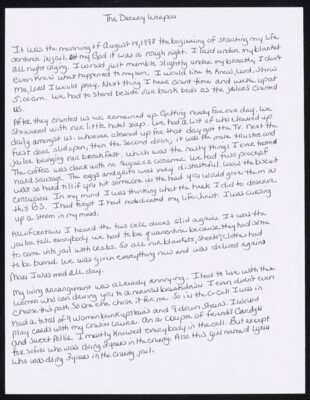 The Dreary Weapon
It was the morning of August 14, 1998 the beginning of starting my life
sentence in jail. Oh my God it was a rough night. I laid under my blanket
all night crying. I would just mumble slightly under my breath, I don't
even know what happened to my son. I would like to know Lord, show
me, Lord I would pray. Next thing I hear count time and woke up at
5:00am. We had to stand beside our bunk beds as the jailors counted
us.
After they counted us we remained up. Getting ready for our day. We
showered with our little hotel soap. We had a list of who cleaned up
daily amongst us. Whoever cleaned up for that day got the Tv. Next the
first door slid open, then the second door, it was the male trustee and
jailor bringing our breakfast. Which was the nasty things I ever tasted
The coffee was dark with no sugar or creamer. We had two pieces of
hard sausage. The eggs and grits was very distasteful. Wow the biscuit
was so hard till if you hit someone in the head you would give them a
concussion. In my mind I was thinking what the heck I did to deserve
this BS. I had forgot I had rededicated my life to christ. I was cursing
up a storm in my mind.
All of a certain I heard the two cell doors slid again. It was the
jailor, tell everybody we had to be quarantine because they had some
to come into jail with crabs. So all our blankets, sheets, clothes had
to be burned. We was given everything new and was deliced again
Man I was mad all day.
My living arrangement was already annoying. I had to live with three
women who can driving you to a nervous breakdown. I even didn't even
choose this path. Someone chose it for me. So in the C-cell I was in
had a total of 9 women bunk upstairs and 9 down stairs. I would
play cards with my cousin Laura. An a couple of friends Carolyn
and Sweet Pollie. I mostly knowed everybody in the cell. But except
for Sofie who was doing 2 years in the county. Also this girl named Lynn
who was doing 3 years in the county jail.